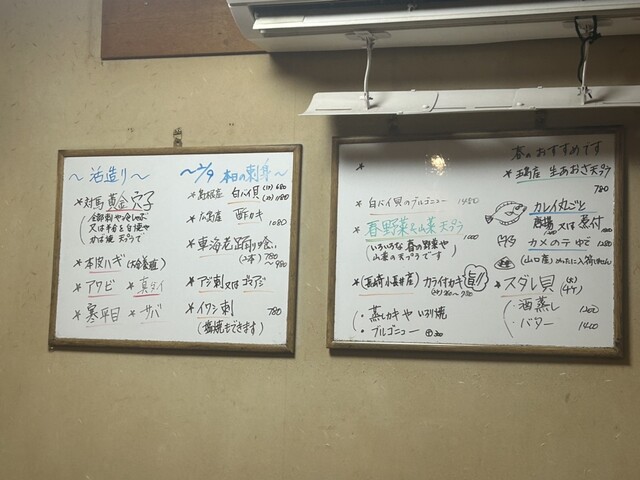 〜活造り〜
*対馬黄金穴子
全部刺や冷しゃぶ
又は半台を白焼や
かば焼 天ぷらで
*本皮ハギ(大分養殖)
*アワビ *真ダイ
*寒平目 *サバ
〜2/9 本日の刺身〜
*島根産 白バイ貝 (小)680
(大)1180
*広島産 酢カキ
1080
*東海老踊り喰い
(2本) 780
〜980
*アジ刺又はゴマアジ
*イワシ刺 780
(塩焼もできます)
*
*白バイ貝のブルゴニュー 1450
*春野菜&山菜天ぷら
1000
(いろいろな春の野菜や
山菜の天ぷらです
*(長崎小長井産) カラ付カキ 旨!!
・蒸しカキや いろり焼
・ブルゴニュー
春のおすすめです
生あおさ天ぷら
780
*カレイ丸ごと
唐揚 又は 煮付
*カメのテゆで 1280
*スダレ貝
・酒蒸し 1300
・バター 1400